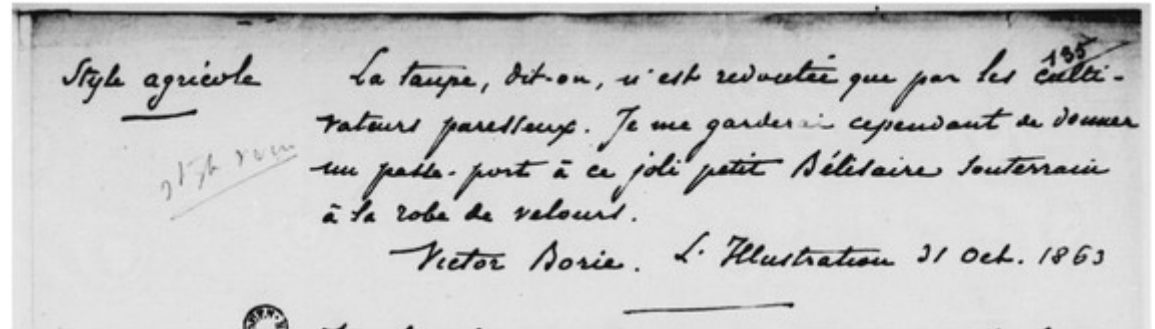 135
Style agricole
La taupe, dit-on, n'est redoutée que par les culti-
vateurs paresseux. Je me garderai cependant de donner
un passe-port à ce joli petit Bélisaire souterrain
à sa robe de velours.
Victor Borie. L'Illustration 31 Oct. 1863